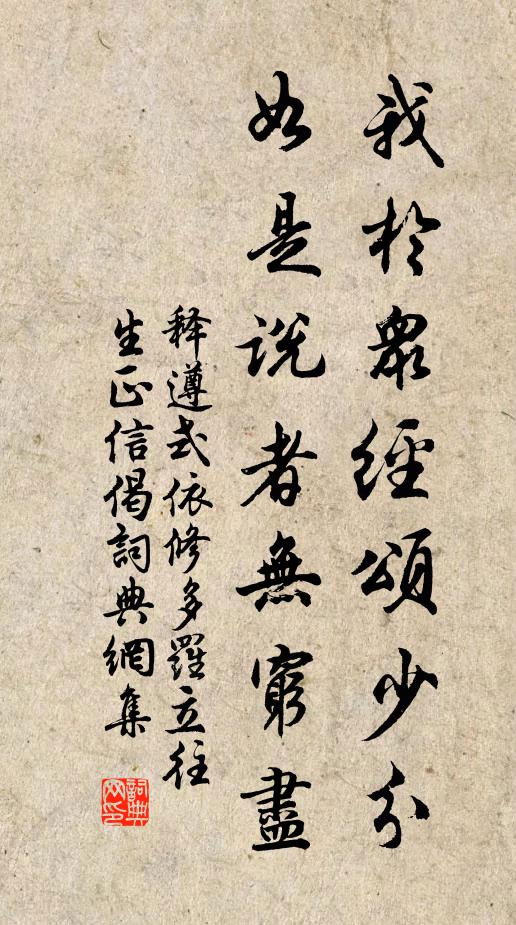 我於眾經頌少分
如是说者無窮盡
释遵式依修多羅立往
生正信偈詞典網集
詞典
网印